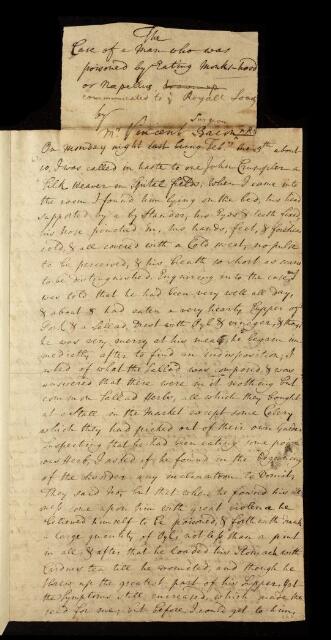 The
Case of a Man who was
poisoned by Eating Monks-hood
or Napellus
communicated to ye Royall Society
by Surgeon
Mr Vincent Bacon FRS
On monday night last being Feb. the 5th about
10, I was called in haste to one John Crumpler a
Silk Weaver in Spittle fields, when I came into
the room I found him lying on the bed, his head
supported by a by stander, his Eyes & teeth fixed
his nose pinched in, his hands, feet, & forehead
cold, & all covered with a Cold sweat, no pulse
to be perceived, & his breath so short as scarce
to be distinguished. Enquiring into the case I
was told that he had been very well all day,
& about 8 had eaten a very hearty Supper of
Pork & a Sallad, Drest with Oyl & vinegar, & that
he was very merry at his meat, he began im
mediatly after to find an indisposition, I
asked of what the Sallad was composed, & was
answered that there were in it nothing but
common Sallad Herbs, all which they bought
at a Stall in the Market except some Celery
which they had picked out of their own Garden
suspecting that he had been eating some poison
ous Herb, I asked if he found in the beginning
of the disorder any inclination to Vomit,
They said Not but that when he found his ill
ness come upon him with great violence he
believed himself to be poisoned, & forthwith drank
a large quantity of Oyl, not less than a pint
in all, & after that he loaded his Stomach with
Carduus tea till he vomited, and though he
threw up the greatest part of his Supper, yet
the Symptoms still encreased, which made them
send for me, but before I could get to him,